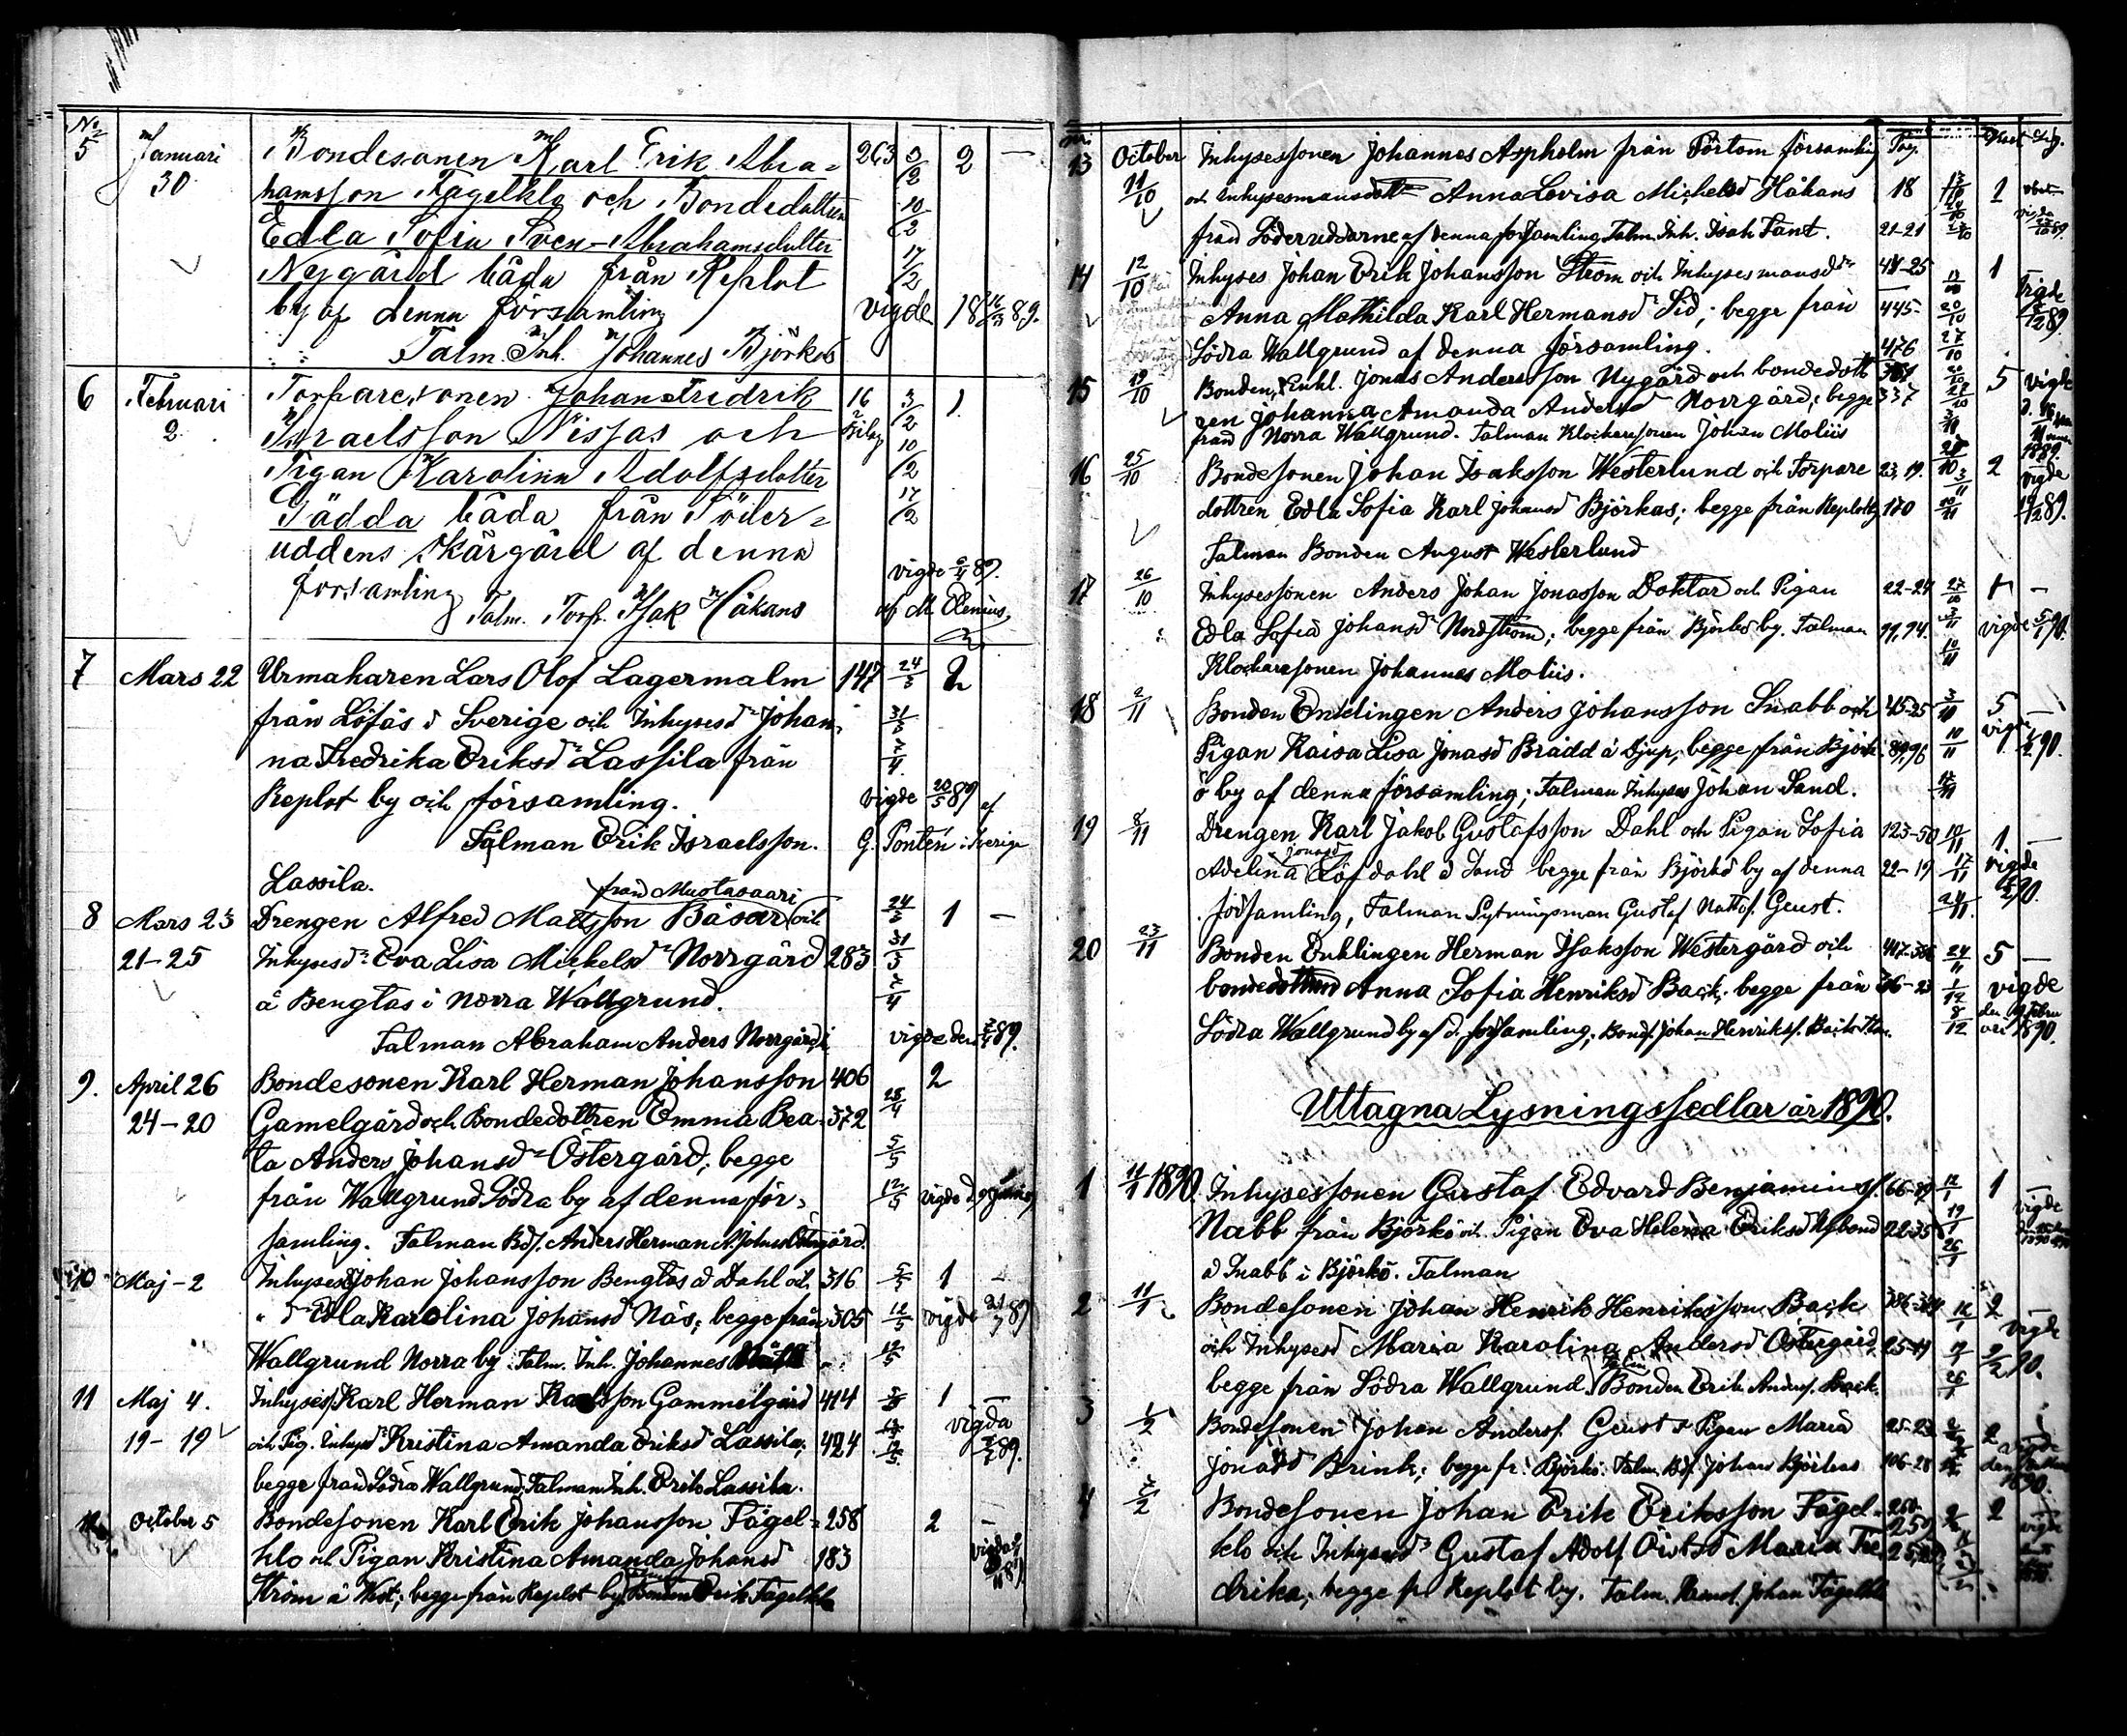 No
5 Januari Bondesonen Karl Erik Abra= 263 3/2 2 —
30 hamsson Fågelklo och Bondedottren 10/2
Edla Sofia Sven-Abrahamsdotter 17/2
Nygård båda från Replot
by af denna församling vigde 18 89.
Talm. Inh. Johannes Björkas
6 Februari Torparesonen Johan Fredrik 16 3/2 1.
2 Israelsson Nissas och 10/2
Pigan Karolina Adolfsdotter 17/2
Gädda båda från Söder=
uddens skärgård af denna
församling vigde 89.
Talm. Torp. Isak Håkans af M. Elenius
7 Mars 22 Urmakaren Lars Olof Lagermalm 147 24/3 2
från Löfås i Sverige och Inhysesdr Johan- 31/3
na Fredrika Eriksdr Lassila från 7/4
Replot by och församling. vigde 20/5 89 af
Talman Erik Israelsson. G. Pontén i Sverige
Lassila.
från Mustasaari
8 Mars 23 Drengen Alfred Mattsson Båsar och 24/3 1 —
21-25 Inhysesdr Eva Lisa Mickelsdr Norrgård 283 31/3
å Bengtas i Norra Wallgrund. 7/4
Talman Abraham Anders Norrgård vigde den 89.
9. April 26 Bondesonen Karl Herman Johansson 406 2
24-20 Gamelgård och Bondedottren Emma Bea- 372 28/4
ta Anders Johansdr Östergård; begge 5/5
från Wallgrund Södra by af denna för- 12/5 vigde d.
samling. Talman Bds. Anders Herman Östergård.
10 Maj-2 Inhyses Johan Johansson Bengtas å Dahl och 316 5/5 1 —
Edla Karolina Johansd Näs; begge från 305 12/5 vigde 89
Wallgrund Norra by. Talm. Inh. Johannes 19/5
11 Maj 4. Inhyses. Karl Herman Karlsson Gammelgård 414 1 —
19-19 och Pig. Inhysdr Kristina Amanda Eriksd Lassila; 424 vigda 89.
begge från Södra Wallgrund; Talman Inh. Erik Lassila.
October 5 Bondesonen Karl Erik Johansson Fågel- 258 2 —
klo och Pigan Kristina Amanda Johansd 183 vigda 89
Ström å West; begge från Replot by. Bonden Erik Fågelklo
13 October Inhysessonen Johannes Aspholm från Förtom församling Pag.
11/10 och Inhysesmansdott Anna Lovisa Michelsd Håkans 18 13/10 1
från Söderuddarne af denna församling Talm. Inh. Isak Fant. 21-21 89.
14 12/10 Inhyses Johan Erik Johansson Ström och Inhysesmansdr 1
Anna Mathilda Karl Hermansd Sid; begge från 445- 20/10 vigde 89.
Södra Wallgrund af denna församling. 476 27/10
15 19/10 Bonden, Enkl. Jonas Andersson Nygård och bondedott 5 vigde
ren Johanna Amanda Andersd Norrgård; begge 337
från Norra Wallgrund. Talman Klockaresonen Johan Moliis 3/11 1889.
16 25/10 Bondesonen Johan Isaksson Westerlund och Torpare 23, 19. 2 vigde
dottren Edla Sofia Karl Johansd Björkas; begge från Replot by 170 10/11 89.
Talman Bonden August Westerlund
17 26/10 Inhysessonen Anders Johan Jonasson Doktar och Pigan 22-24 27/10 —
Edla Sofia Johansd Nordström; begge från Björkö by. Talman 3/11 vigde 5/1 90.
Klockaresonen Johannes Moliis. 10/11
18 2/11 Bonden Enklingen Anders Johansson Snabb och 45-25 3/11 5 —
Pigan Kaisa Lisa Jonasd Brädd å Djup; begge från Björk- 10/11 vigde 90.
ö by af denna församling; Talman Inhyses Johan Sand. 17/11
19 8/11 Drengen Karl Jakob Gustafsson Dahl och Pigan Sofia 123-50 10/11 1 —
Adelina Jonasd Löfdahl å Sand begge från Björkö by af denna 22-19 17/11 vigde
församling, Talman Sytningsman Gustaf Matts. Geust. 24/11 90.
20 23/11 Bonden Enklingen Herman Isaksson Westergård och 24/11 5 —
bondedottren Anna Sofia Henriksd Back; begge från 1/12 vigde
Södra Wallgrund by af d. församling; Bonds. Johan Henrikss. Back 8/12 1890.
Uttagna Lysningssedlar år 1890.
1 11/1 1890. Inhysessonen Gustaf Edvard Benjamins. 66-89 12/1 1 —
Nabb från Björkö och Pigan Eva Helena Eriksd 19/1 vigde
å Snabb i Björkö. Talman 26/1
2 11/1 Bondesonen Johan Henrik Henriksson Back 12/1 2 —
och Inhysesd Maria Karolina Andersd Östergård 25-19 vigde 90.
begge från Södra Wallgrund. Talm. Bonden Erik Anders. Back. 26/1
3 1/2 Bondesonen Johan Anderss. Geust o Pigan Maria 25-23 2
Jonasd Brink; begge fr. Björkö. Talm. Bds. Johan Björkas 106-28 1890.
4 2/2 Bondesonen Johan Erik Eriksson Fågel- 250 2
klo och Inhysesdr Gustaf Adolf Maria Fre-
drika; begge fr Replot by. Talm. Johan Fågelklo